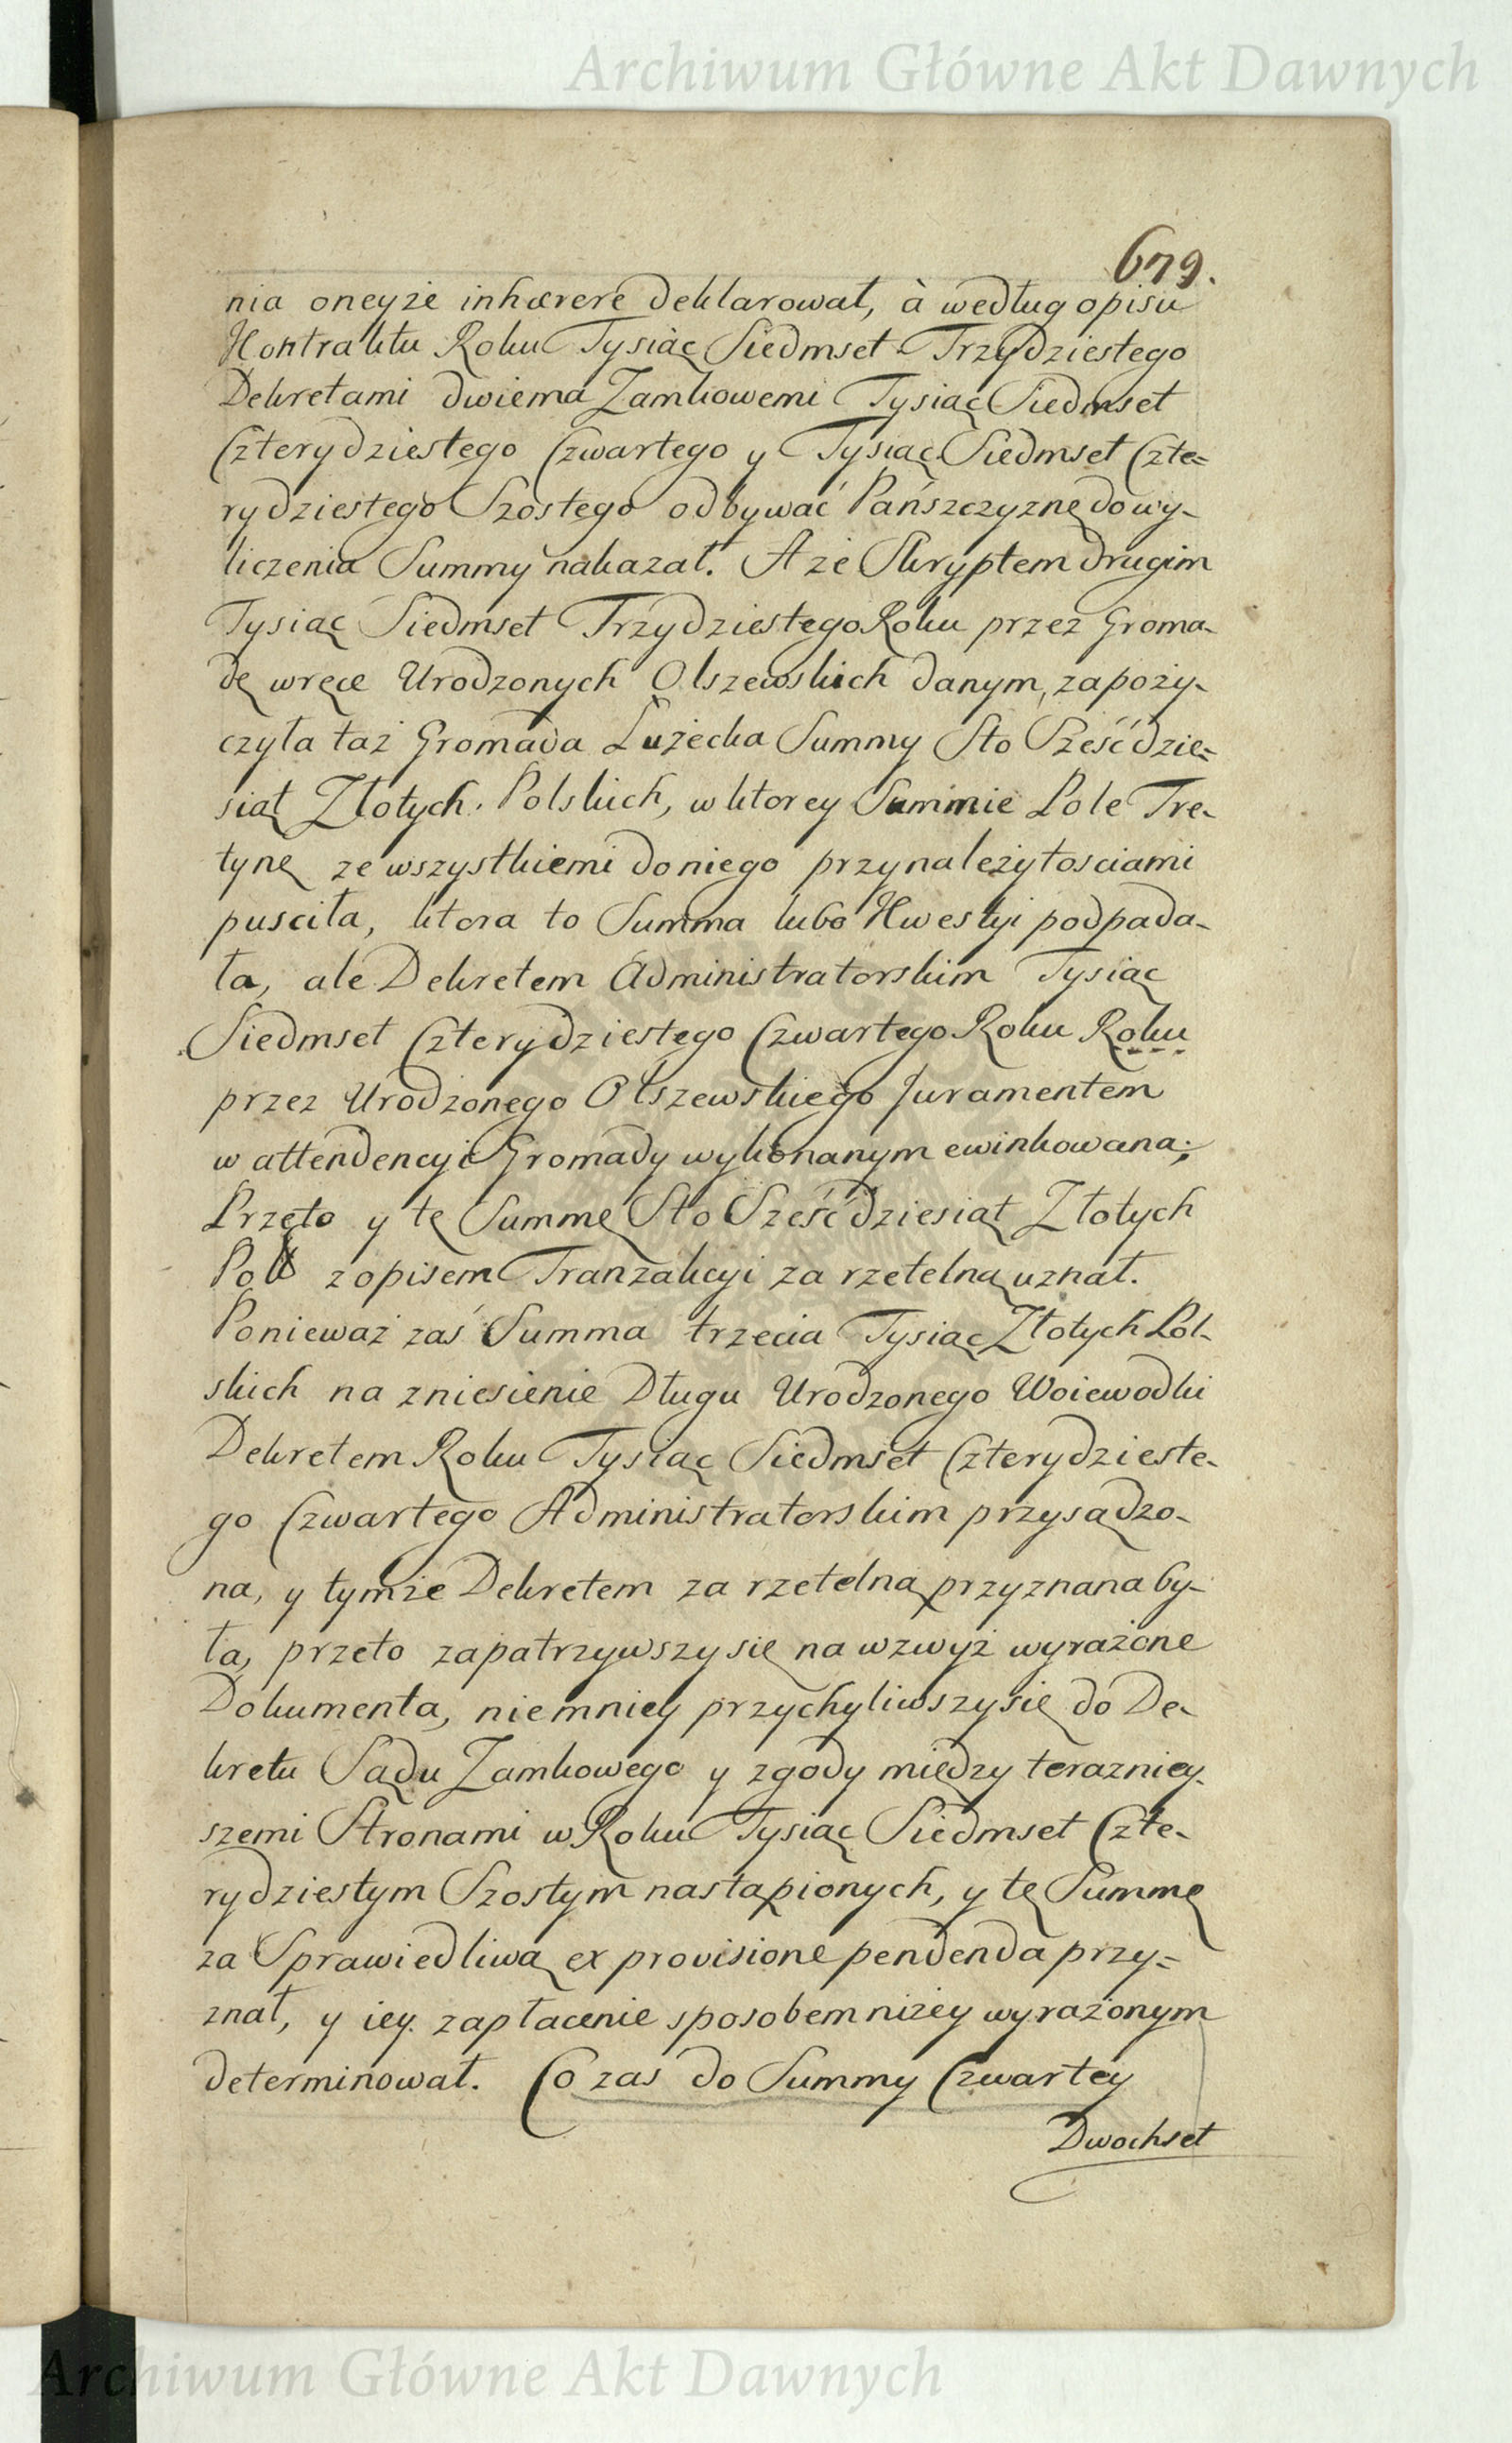 Archiwum Główne Akt Dawnych
679.
nia oneyże inhærere deklarował, à według opisu
Kontraktu Roku Tysiąc Siedmset Trzydziestego
Dekretami dwiema Zamkowemi Tysiąc Siedmset
Czterydziestego Czwartego y Tysiąc Siedmset Czte=
rydziestego Szostego odbywać Pańszczyznę do wy-
liczenia Summy nakazał. A że Skryptem drugim
Tysiąc Siedmset Trzydziestego Roku przez Groma-
dę wręce Urodzonych Olszewskich danym, zapoży-
czyła taż Gromada Łużecka Summy Sto Sześćdzie=
siąt Złotych Polskich, w ktorey Summie Pole Tre-
tynę ze wszystkiemi do niego przynależytosciami
pusciła, ktora to Summa lubo Kwestyi podpada-
ła, ale Dekretem Administratorskim Tysiąc
Siedmset Czterydziestego Czwartego Roku Roku
przez Urodzonego Olszewskiego Juramentem
w attendencyi Gromady wykonanym ewinkowana;
Przeto y tę Summę Sto Sześćdziesiąt Złotych
Pol z opisem Tranzakcyi za rzetelną uznał.
Ponieważ zaś Summa trzecia Tysiąc Złotych Pol-
skich na zniesienie Długu Urodzonego Woiewodki
Dekretem Roku Tysiąc Siedmset Czterydzieste-
go Czwartego Administratorskim przysądzo-
na, y tymże Dekretem za rzetelną przyznana by-
ła, przeto zapatrzywszy się na wzwyż wyrażone
Dokumenta, niemniey przychyliwszy się do De-
kretu Sądu Zamkowego y zgody między terazniey-
szemi Stronami w Roku Tysiąc Siedmset Czte-
rydziestym Szostym nastąpionych, y tę Summę
za Sprawiedliwą ex provisione pendenda przy=
znał, y iey zapłacenie sposobem niżey wyrażonym
determinował. Co zas do Summy Czwartey
Dwochset
Archiwum Główne Akt Dawnych